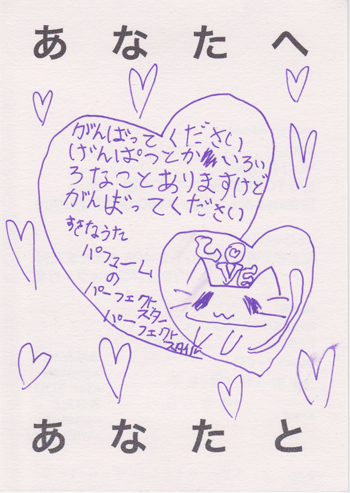 あなたへ
がんばってください
げんぱつとか いろい
ろなことありますけど
がんばってください
すきなうた
パフュームの
パーフェクト
スター
パーフェクト
スタイル
LOVE
あなたと